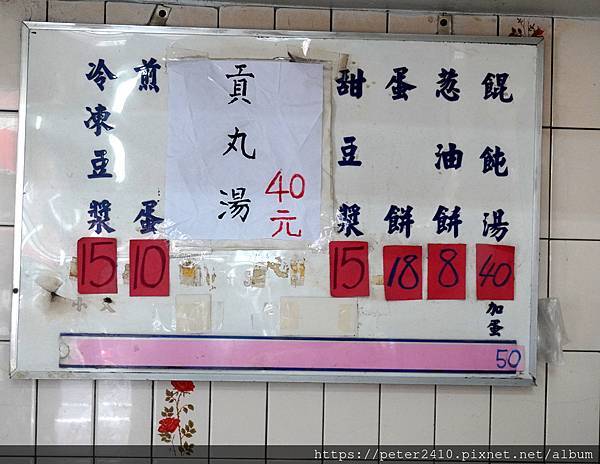 餛飩湯 40
加蛋 50
葱油餅 8
蛋餅 18
甜豆漿 15
貢丸湯 40元
煎蛋 10
冷凍豆漿 15
https://peter2410.pixnet.net/album